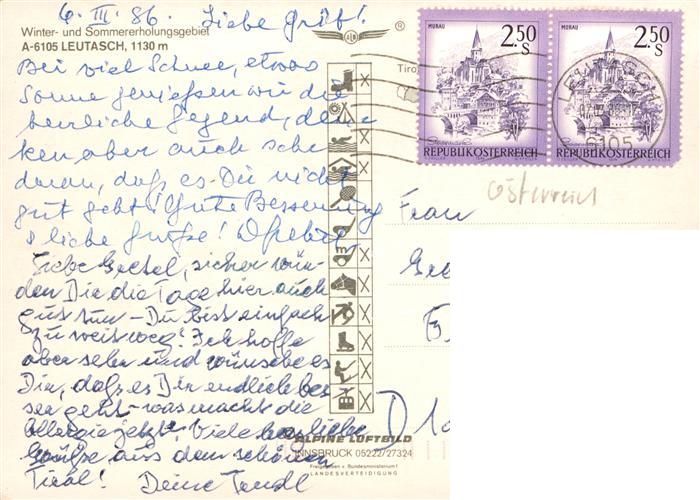 6. III. 86. Liebe
Winter- und Sommererholungsgebiet
A-6105 LEUTASCH, 1130 m
Bei viel Schnee, etwas
Sonne genießen wir die
herrliche Gegend, den-
ken aber auch sehr
daran, daß es Dir nicht
gut geht! Gute Besserung
liebe Grüße!
Liebe Gretel, sicher wür-
den Dir die Tage hier auch
gut tun – Du bist einfach
zu weit weg! Ich hoffe
aber sehr und wünsche es
Dir, daß es Dir endlich bes-
ser geht – was macht die
Allergie jetzt? Viele herzliche
Grüße aus dem schönen
Tirol! Deine
®
Tiro
MURAU
2.50
S
REPUBLIK ÖSTERREICH
MURAU
2.50
S
REPUBLIK ÖSTERREICH
LEUTASCH
6105
Österreich
Frau
D
ALPINE LUFTBILD
INNSBRUCK 05222/27324
Freigegeben v. Bundesministerium f.
LANDESVERTEIDIGUNG